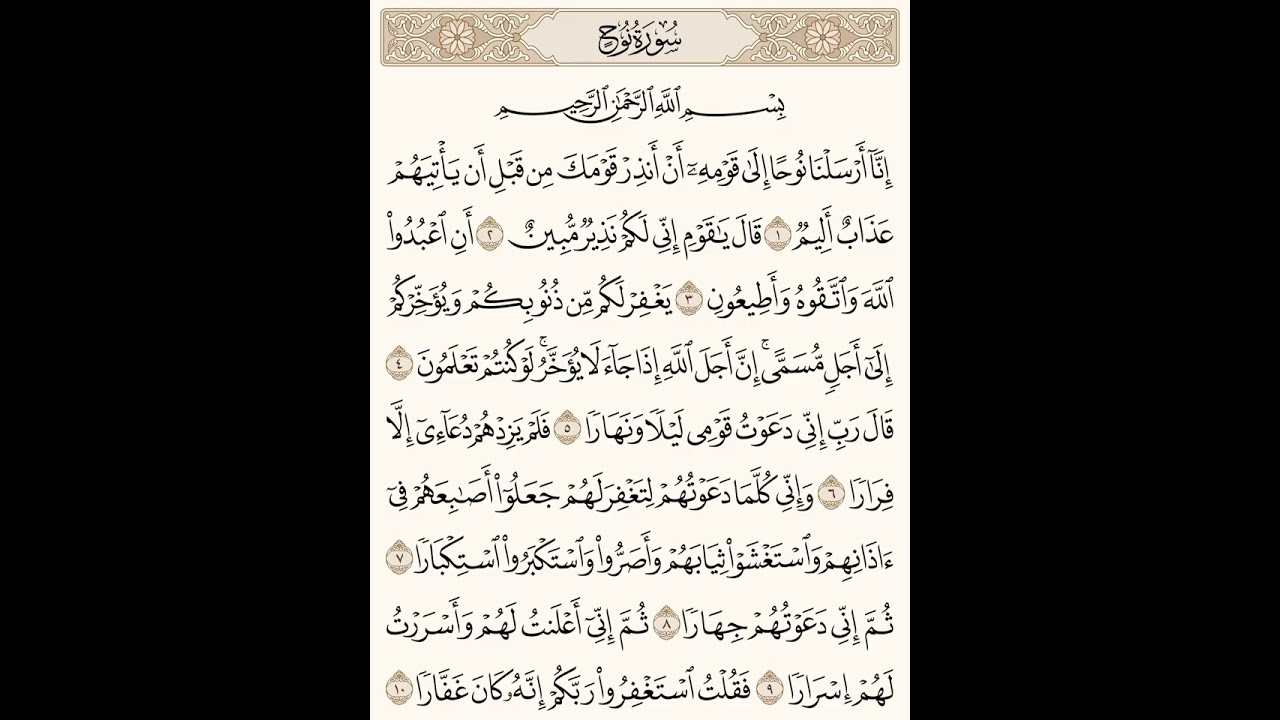 سُورَةُ نُوحٍ
بِسْمِ ٱللَّهِ ٱلرَّحْمَٰنِ ٱلرَّحِيمِ
إِنَّآ أَرْسَلْنَا نُوحًا إِلَىٰ قَوْمِهِۦٓ أَنْ أَنذِرْ قَوْمَكَ مِن قَبْلِ أَن يَأْتِيَهُمْ
عَذَابٌ أَلِيمٌ ١ قَالَ يَٰقَوْمِ إِنِّى لَكُمْ نَذِيرٌ مُّبِينٌ ٢ أَنِ ٱعْبُدُوا۟
ٱللَّهَ وَٱتَّقُوهُ وَأَطِيعُونِ ٣ يَغْفِرْ لَكُم مِّن ذُنُوبِكُمْ وَيُؤَخِّرْكُمْ
إِلَىٰٓ أَجَلٍ مُّسَمًّى ۚ إِنَّ أَجَلَ ٱللَّهِ إِذَا جَآءَ لَا يُؤَخَّرُ ۖ لَوْ كُنتُمْ تَعْلَمُونَ ٤
قَالَ رَبِّ إِنِّى دَعَوْتُ قَوْمِى لَيْلًا وَنَهَارًا ٥ فَلَمْ يَزِدْهُمْ دُعَآءِىٓ إِلَّا
فِرَارًا ٦ وَإِنِّى كُلَّمَا دَعَوْتُهُمْ لِتَغْفِرَ لَهُمْ جَعَلُوٓا۟ أَصَٰبِعَهُمْ فِىٓ
ءَاذَانِهِمْ وَٱسْتَغْشَوْا۟ ثِيَابَهُمْ وَأَصَرُّوا۟ وَٱسْتَكْبَرُوا۟ ٱسْتِكْبَارًا ٧
ثُمَّ إِنِّى دَعَوْتُهُمْ جِهَارًا ٨ ثُمَّ إِنِّىٓ أَعْلَنتُ لَهُمْ وَأَسْرَرْتُ
لَهُمْ إِسْرَارًا ٩ فَقُلْتُ ٱسْتَغْفِرُوا۟ رَبَّكُمْ إِنَّهُۥ كَانَ غَفَّارًا ١٠